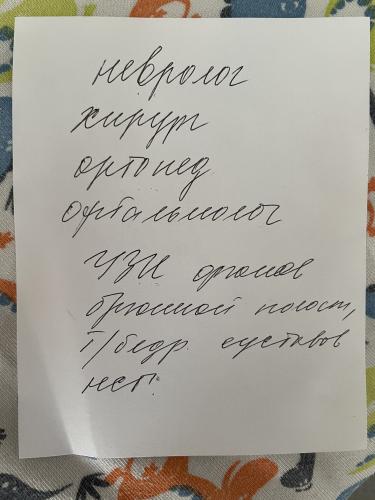 невролог
хирург
ортопед
офтальмолог
УЗИ органов
брюшной полост,
т/бедр. суставов
нсг.